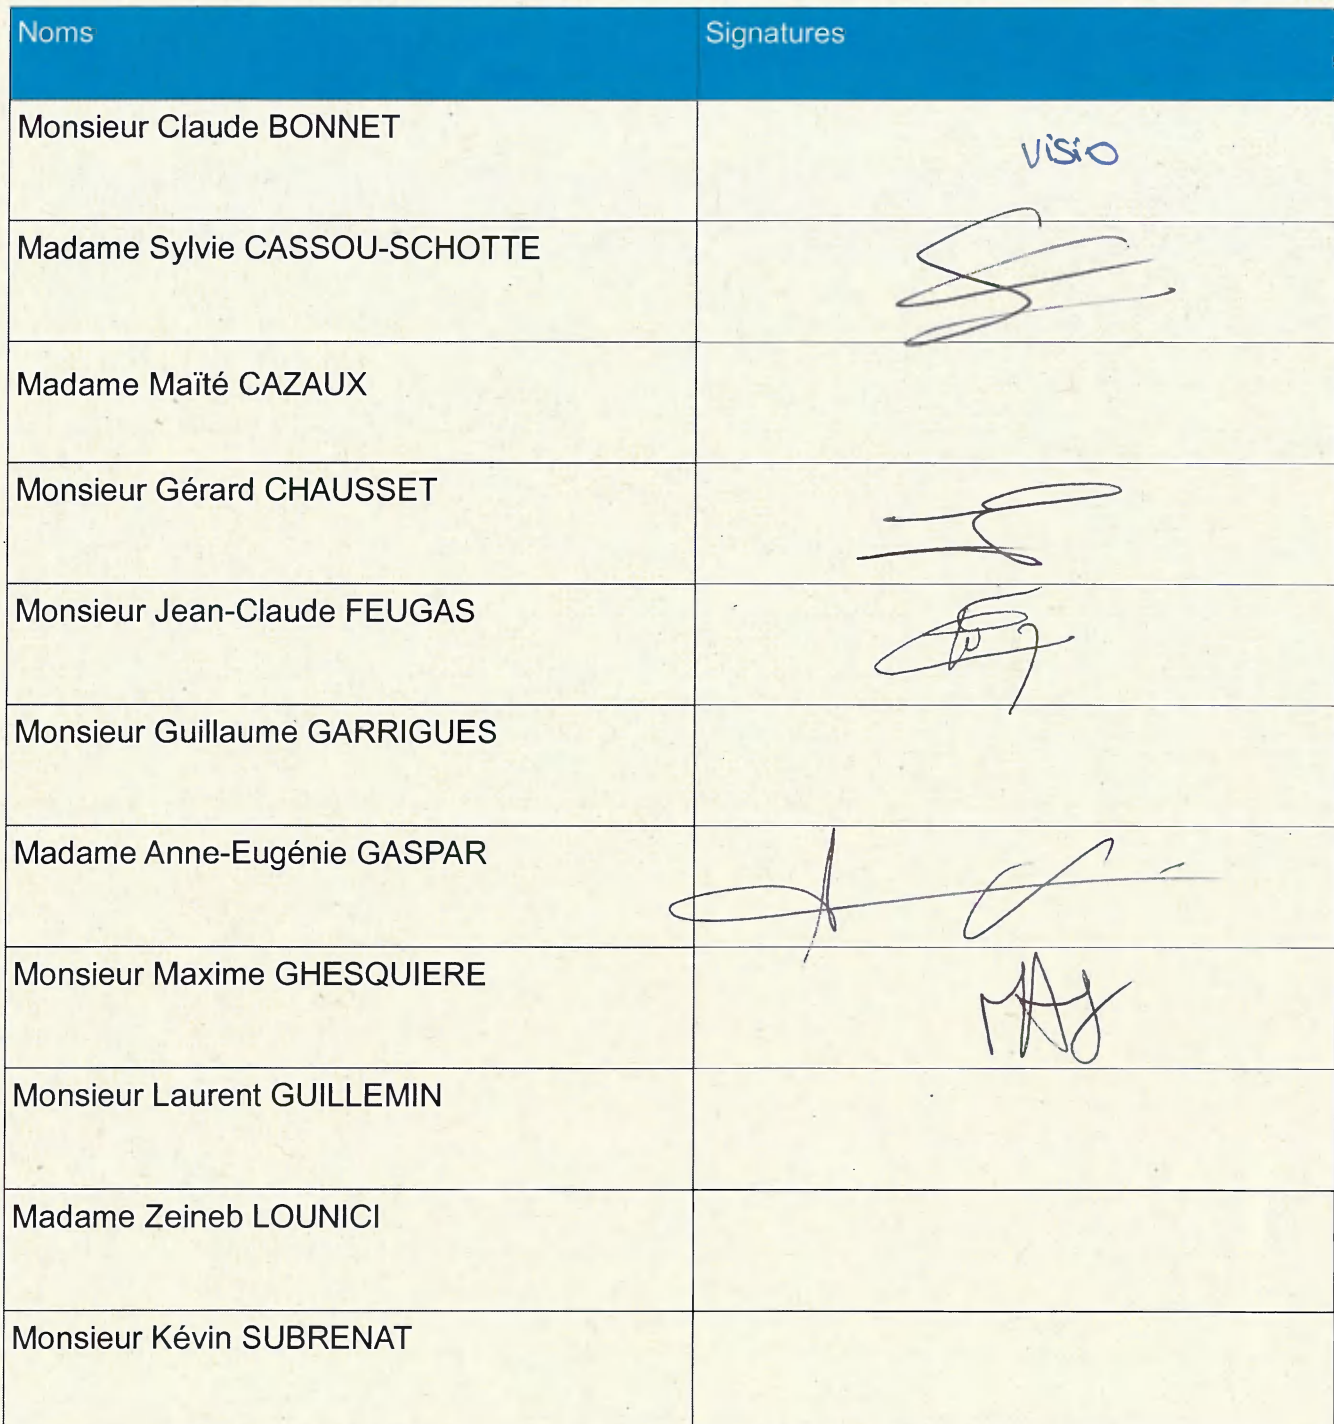 Noms
Signatures
Monsieur Claude BONNET
visio
Madame Sylvie CASSOU-SCHOTTE
Madame Maïté CAZAUX
Monsieur Gérard CHAUSSET
Monsieur Jean-Claude FEUGAS
Monsieur Guillaume GARRIGUES
Madame Anne-Eugénie GASPAR
Monsieur Maxime GHESQUIERE
Monsieur Laurent GUILLEMIN
Madame Zeineb LOUNICI
Monsieur Kévin SUBRENAT